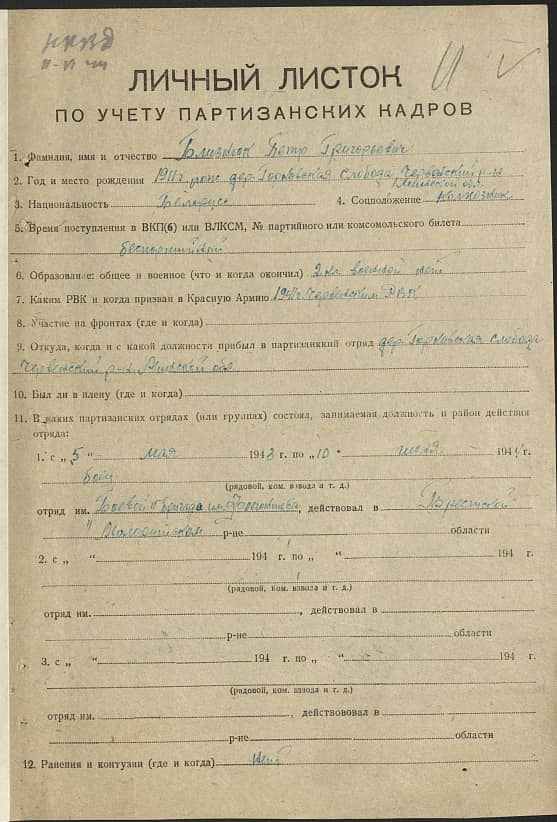 ЛИЧНЫЙ ЛИСТОК
ПО УЧЕТУ ПАРТИЗАНСКИХ КАДРОВ
1. Фамилия, имя и отчество Близнюк Петр Григорьевич
2. Год и место рождения 1911 г. рожд. дер. Горковская Слобода, Червенский р-н
Минской обл.
3. Национальность Беларус 4. Соцположение колхозник
5. Время поступления в ВКП(б) или ВЛКСМ, № партийного или комсомольского билета
беспартийный
6. Образование: общее и военное (что и когда окончил) 2 кл. военной нет
7. Каким РВК и когда призван в Красную Армию Червенским РВК
8. Участие на фронтах (где и когда)
9. Откуда, когда и с какой должности прибыл в партизанский отряд дер. Горковская слобода
Червенский р-н, Минской обл.
10. Был ли в плену (где и когда)
11. В каких партизанских отрядах (или группах) состоял, занимаемая должность и район действия
отряда:
1. с „ 5 “ мая 1943 г. по „ 10 “ 1944 г.
боец
(рядовой, ком. взвода и т. д.)
отряд им. Боевой бригада им. , действовал в Брестской
р-не области
2. с „ “ 194 г. по „ “ 194 г.
(рядовой, ком. взвода и т. д.)
отряд им. , действовал в
р-не области
3. с „ “ 194 г. по „ “ 194 г.
(рядовой, ком. взвода и т. д.)
отряд им. , действововал в
р-не области
12. Ранения и контузии (где и когда) нет